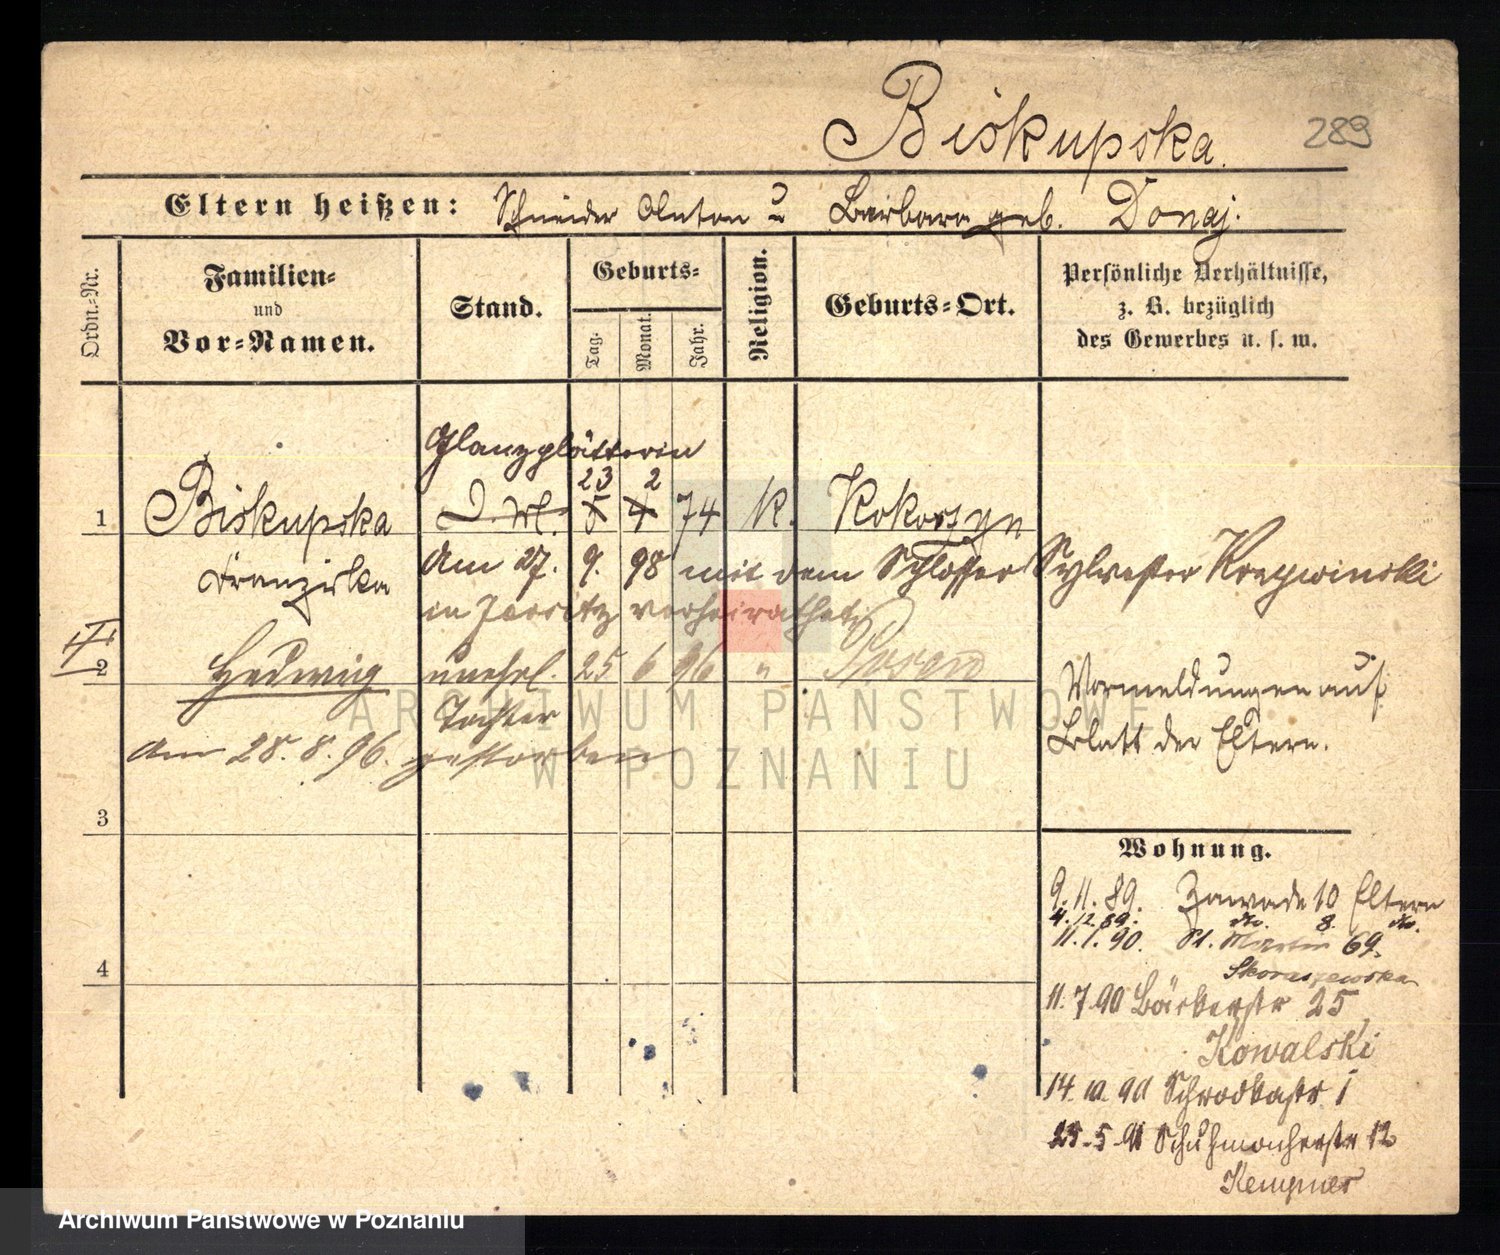 Biskupska.
289
Eltern heißen: Schneider Anton u Barbara geb. Donaj.
Ordn.-Nr.
Familien-
und
Vor-Namen.
Stand.
Geburts-
Tag.
Monat.
Jahr.
Religion.
Geburts-Ort.
Persönliche Verhältnisse,
z. B. bezüglich
des Gewerbes u. s. w.
Glanzplätterin
23 2
1 Biskupska D. M. 5 4 74 K. Kokorzyn
Franziska
Am 27. 9. 98 mit dem Schlosser Sylvester Krzywinski
in Jersitz verheirathet
II
2 Hedwig unehel. 25 6 96 " Posen
Tochter
am 28. 8. 96. gestorben
Vormeldungen auf
Blatt der Eltern.
3
4
Wohnung.
9. 11. 89. Zawade 10 Eltern
4. 12. 89. do. 8. do.
11. 1. 90. St. Martin 69.
Skoraszewska
11. 7. 90 Bäckerstr 25
Kowalski
14. 10. 90 Schrodkastr 1
5. 91 Schuhmacherstr 12
Kempner
ARCHIWUM PAŃSTWOWE
W POZNANIU
Archiwum Państwowe w Poznaniu